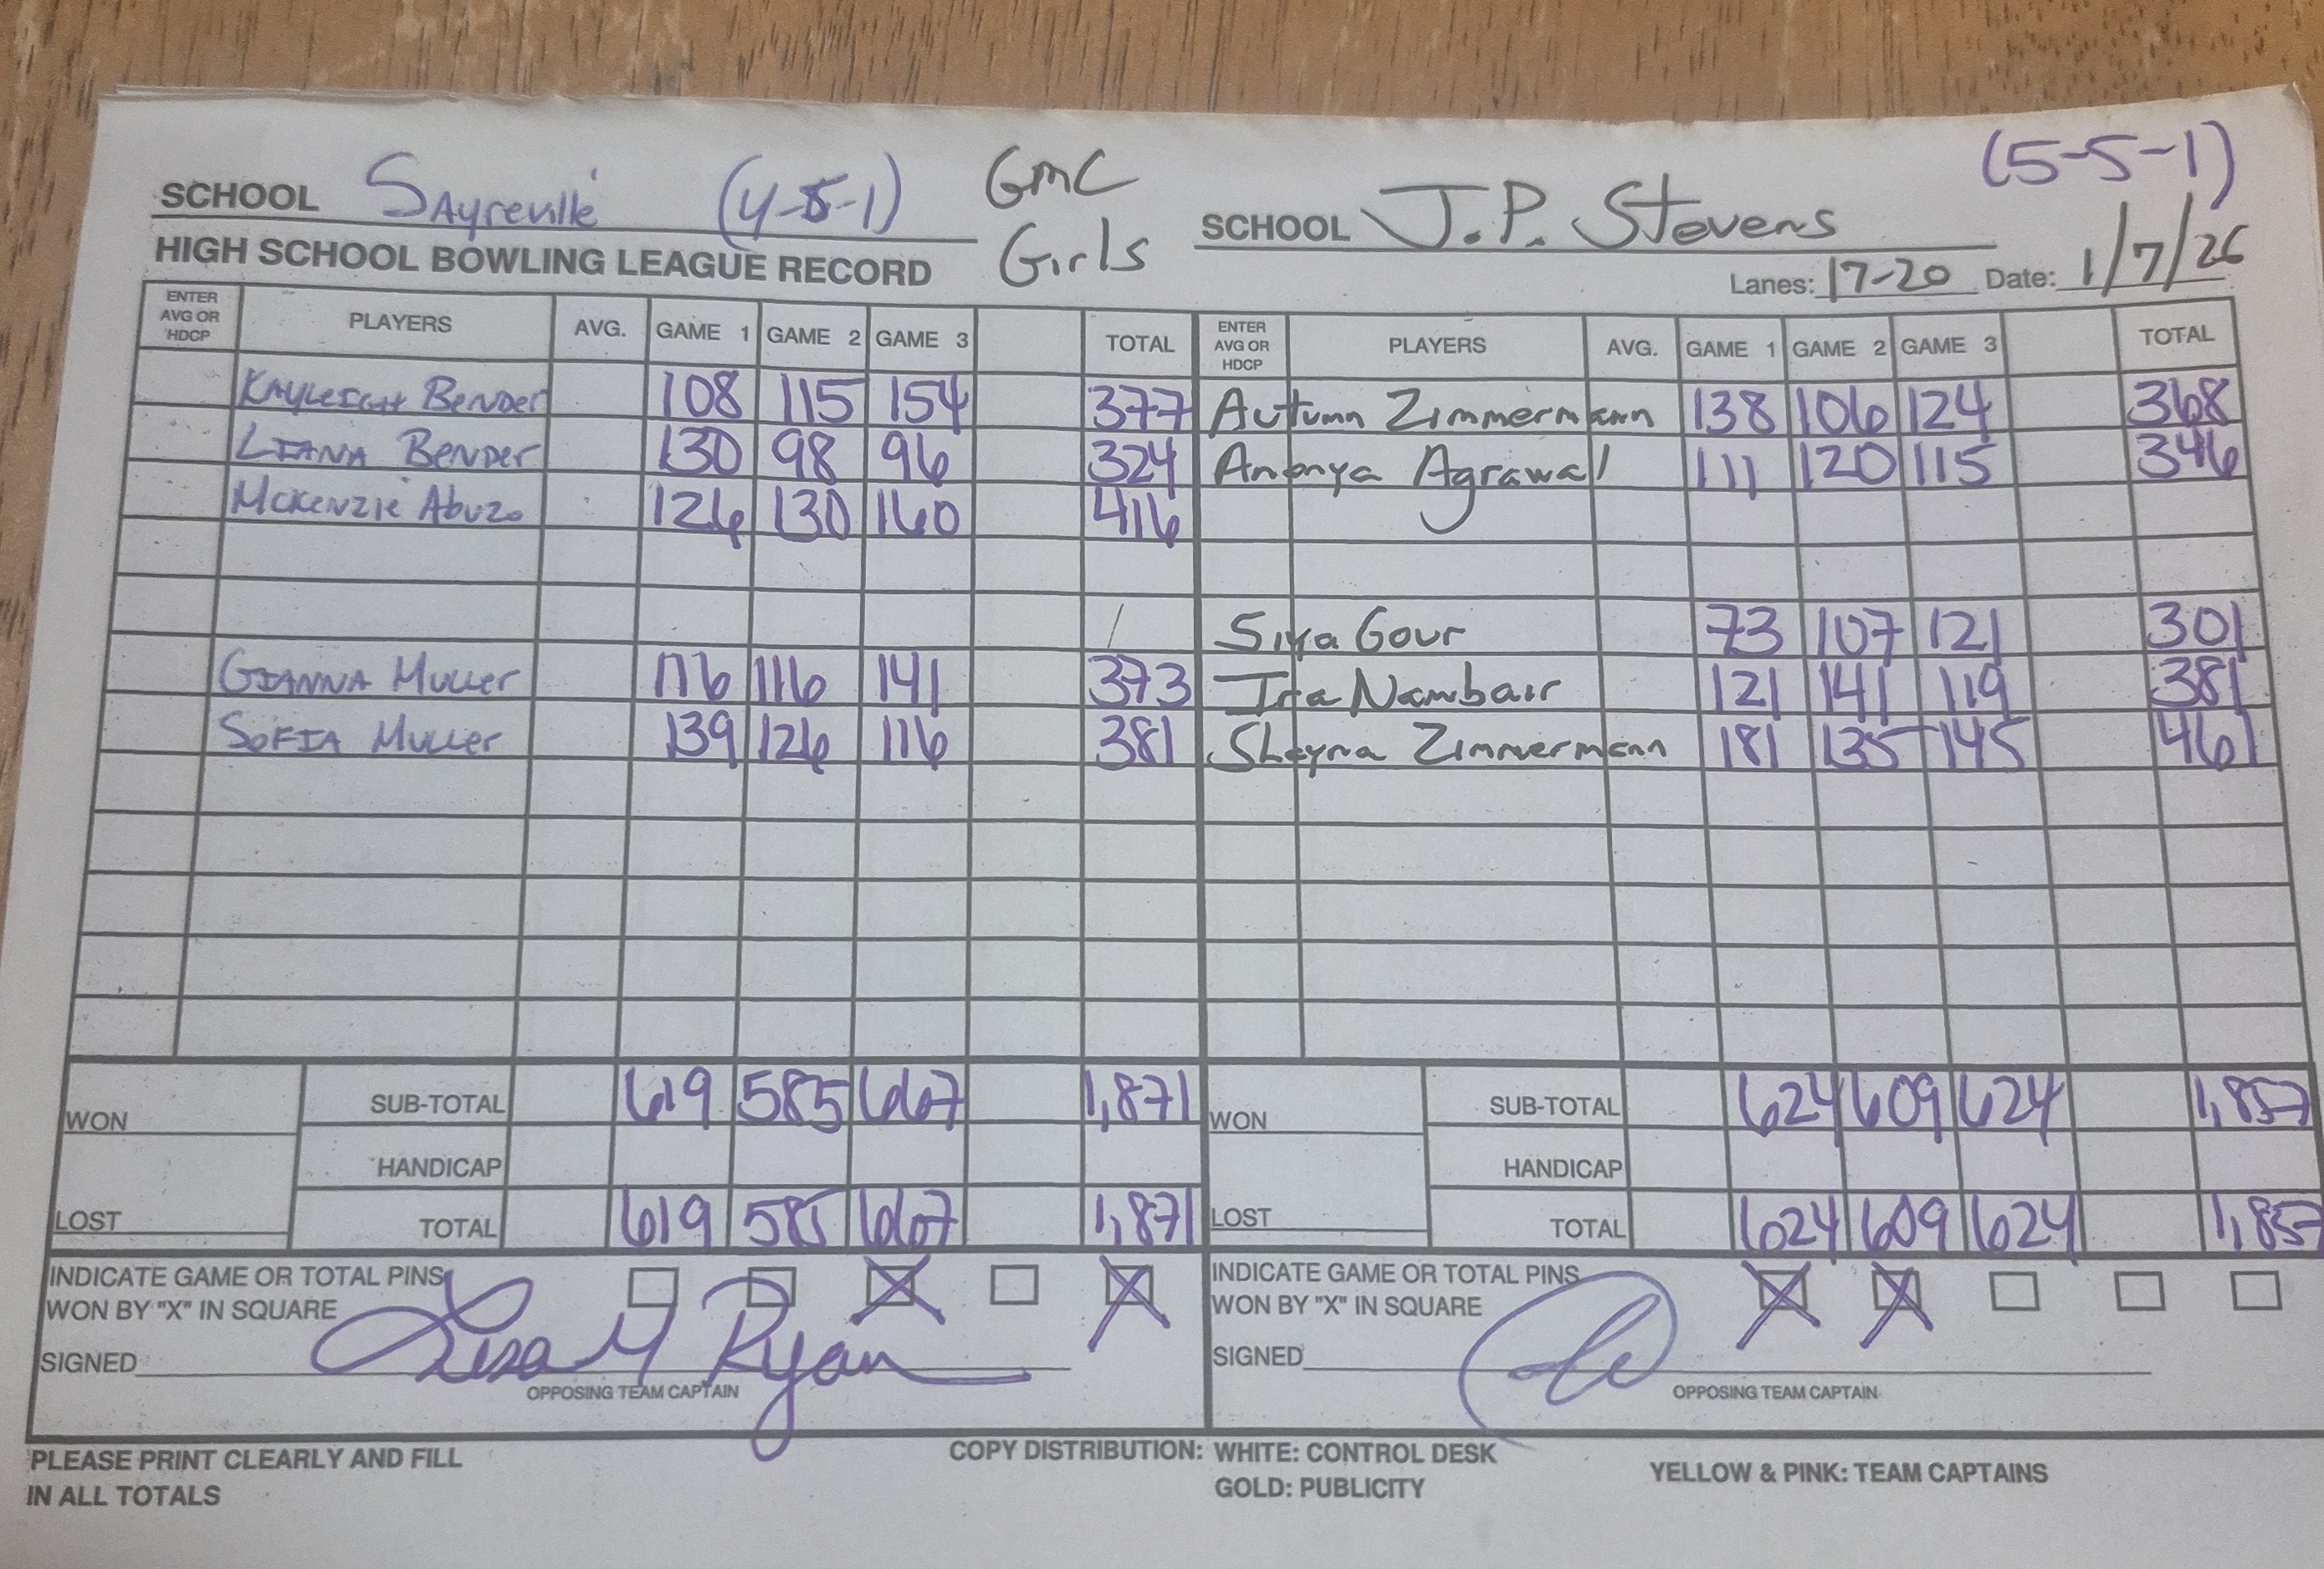 SCHOOL Sayreville (4-5-1) GMC Girls
SCHOOL J.P. Stevens (5-5-1)
HIGH SCHOOL BOWLING LEAGUE RECORD
Lanes: 17-20 Date: 1/7/26
ENTER AVG OR HDCP PLAYERS AVG. GAME 1 GAME 2 GAME 3 TOTAL
Kayleigh Bender 108 115 154 377
Liana Bender 130 98 96 324
McKenzie Abuzo 126 130 160 416
Gianna Muller 116 116 141 373
Sofia Muller 139 126 116 381
WON
SUB-TOTAL 619 585 667 1,871
HANDICAP
LOST
TOTAL 619 585 667 1,871
INDICATE GAME OR TOTAL PINS
WON BY "X" IN SQUARE
SIGNED Lisa M Ryan
OPPOSING TEAM CAPTAIN
ENTER AVG OR HDCP PLAYERS AVG. GAME 1 GAME 2 GAME 3 TOTAL
Autumn Zimmermann 138 106 124 368
Ananya Agrawal 111 120 115 346
Siya Gour 73 107 121 301
Ira Nambair 121 141 119 381
Shayna Zimmermann 181 135 145 461
WON
SUB-TOTAL 624 609 624 1,857
HANDICAP
LOST
TOTAL 624 609 624 1,857
INDICATE GAME OR TOTAL PINS
WON BY "X" IN SQUARE
SIGNED
OPPOSING TEAM CAPTAIN
PLEASE PRINT CLEARLY AND FILL
IN ALL TOTALS
COPY DISTRIBUTION: WHITE: CONTROL DESK
GOLD: PUBLICITY
YELLOW & PINK: TEAM CAPTAINS